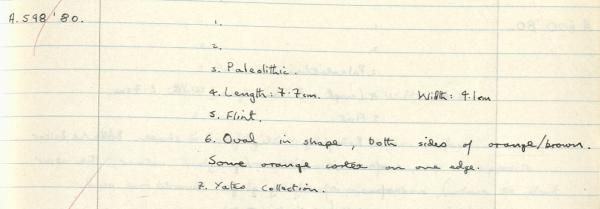 A.598'80.
1.
2.
3. Paleolithic.
4. Length: 7.7cm. Width: 4.1cm
5. Flint.
6. Oval in shape, both sides of orange/brown.
Some orange cortex on one edge.
7. Yates Collection.